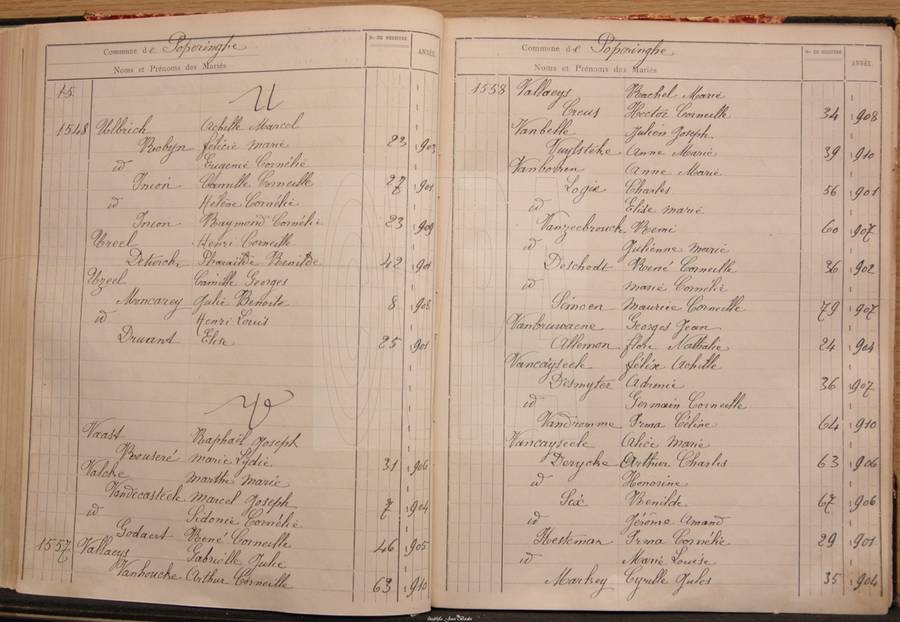 Commune de Poperinghe
Nos DE REGISTRE
ANNÉE.
Noms et Prénoms des Mariés
15
U
1548 Ulbrich Achille Marcel
Robyn Félicie Marie 23 1903
id Eugenie Cornélie
Inion Camille Corneille 27 1901
id Helène Cornélie
Inion Raymond Cornélie 23 1909
Ureel Henri Corneille
Deturck Pharaïlde Benilde 42 1901
Ureel Camille Georges
Moncarey Julie Benoite 8 1908
id Henri Louis
Druant Elise 25 1901
V
Vaast Raphaël Joseph
Bouseré Marie Lydie 31 1906
Valcke Marthe Marie
Vandecasteele Marcel Joseph 7 1904
id Sidonie Cornélie
Godaert René Corneille 46 1905
1557 Vallaeys Gabrielle Julie
Vanboucke Arthur Corneille 63 1910
Commune de Poperinghe
Nos DE REGISTRE
ANNÉE.
Noms et Prénoms des Mariés
1558 Vallaeys Rachel Marie
Creus Hector Corneille 34 1908
Vanbelle Julien Joseph
Vuylsteke Anne Marie 39 1910
Vanboven Anne Marie
Logie Charles 56 1901
id Elise Marie
Vanzeebrouck Remi 60 1907
id Julienne Marie
Deschodt René Corneille 36 1902
id Marie Cornélie
Simoen Maurice Corneille 79 1907
Vanbruwaene Georges Jean
Allemon Flore Nathalie 24 1904
Vancayseele Félix Achille
Desmyter Adrienne 36 1907
id Germain Corneille
Vandromme Irma Céline 64 1910
Vancayseele Alice Marie
Derycke Arthur Charles 63 1906
id Honorine
Six Benilde 67 1906
id Jérôme Amand
Hesteman Irma Cornélie 29 1901
id Marie Louise
Markey Cyrille Jules 35 1904